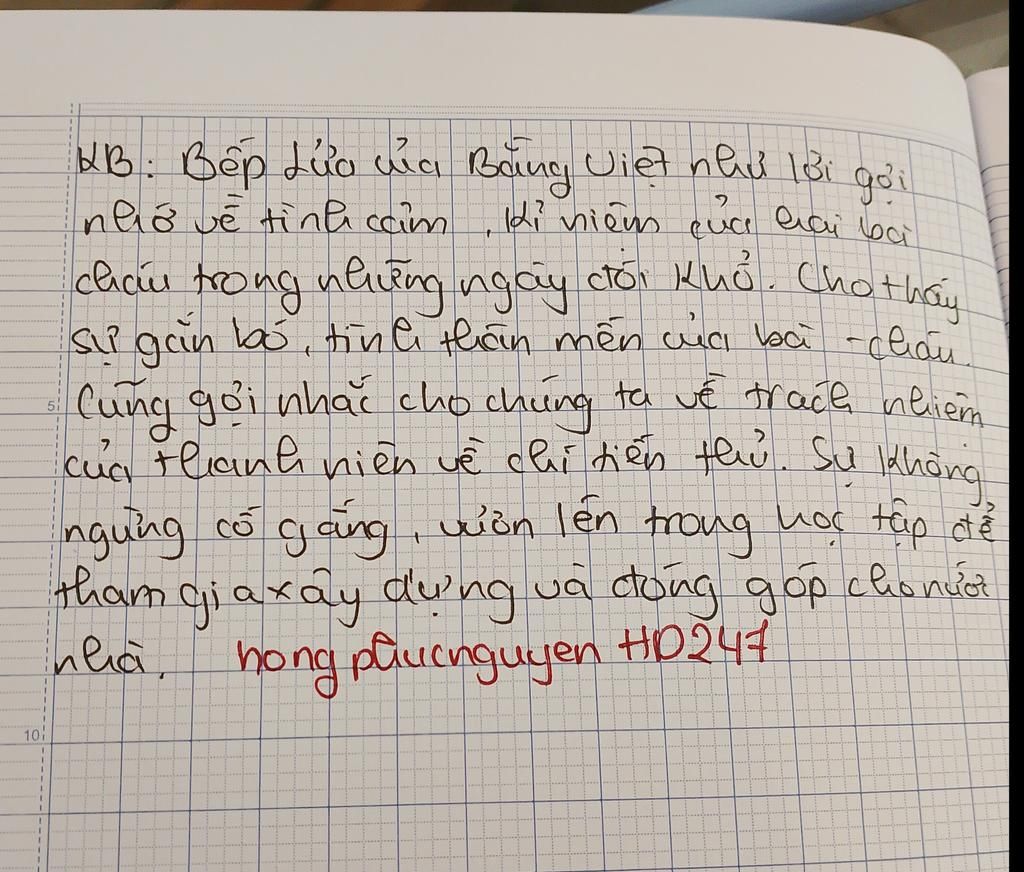 KB: Bếp lửa của Bằng Việt như lời gợi
nhớ về tình cảm, kỉ niệm của hai bà
cháu trong những ngày đói khổ. Cho thấy
sự gắn bó, tình thân mến của bà - cháu.
Cũng gợi nhắc cho chúng ta về trách nhiệm
của thanh niên về chí tiến thủ. Sự không
ngừng cố gắng, vươn lên trong học tập để
tham gia xây dựng và đóng góp cho nước
nhà. hongphucnguyen HD247
5
10